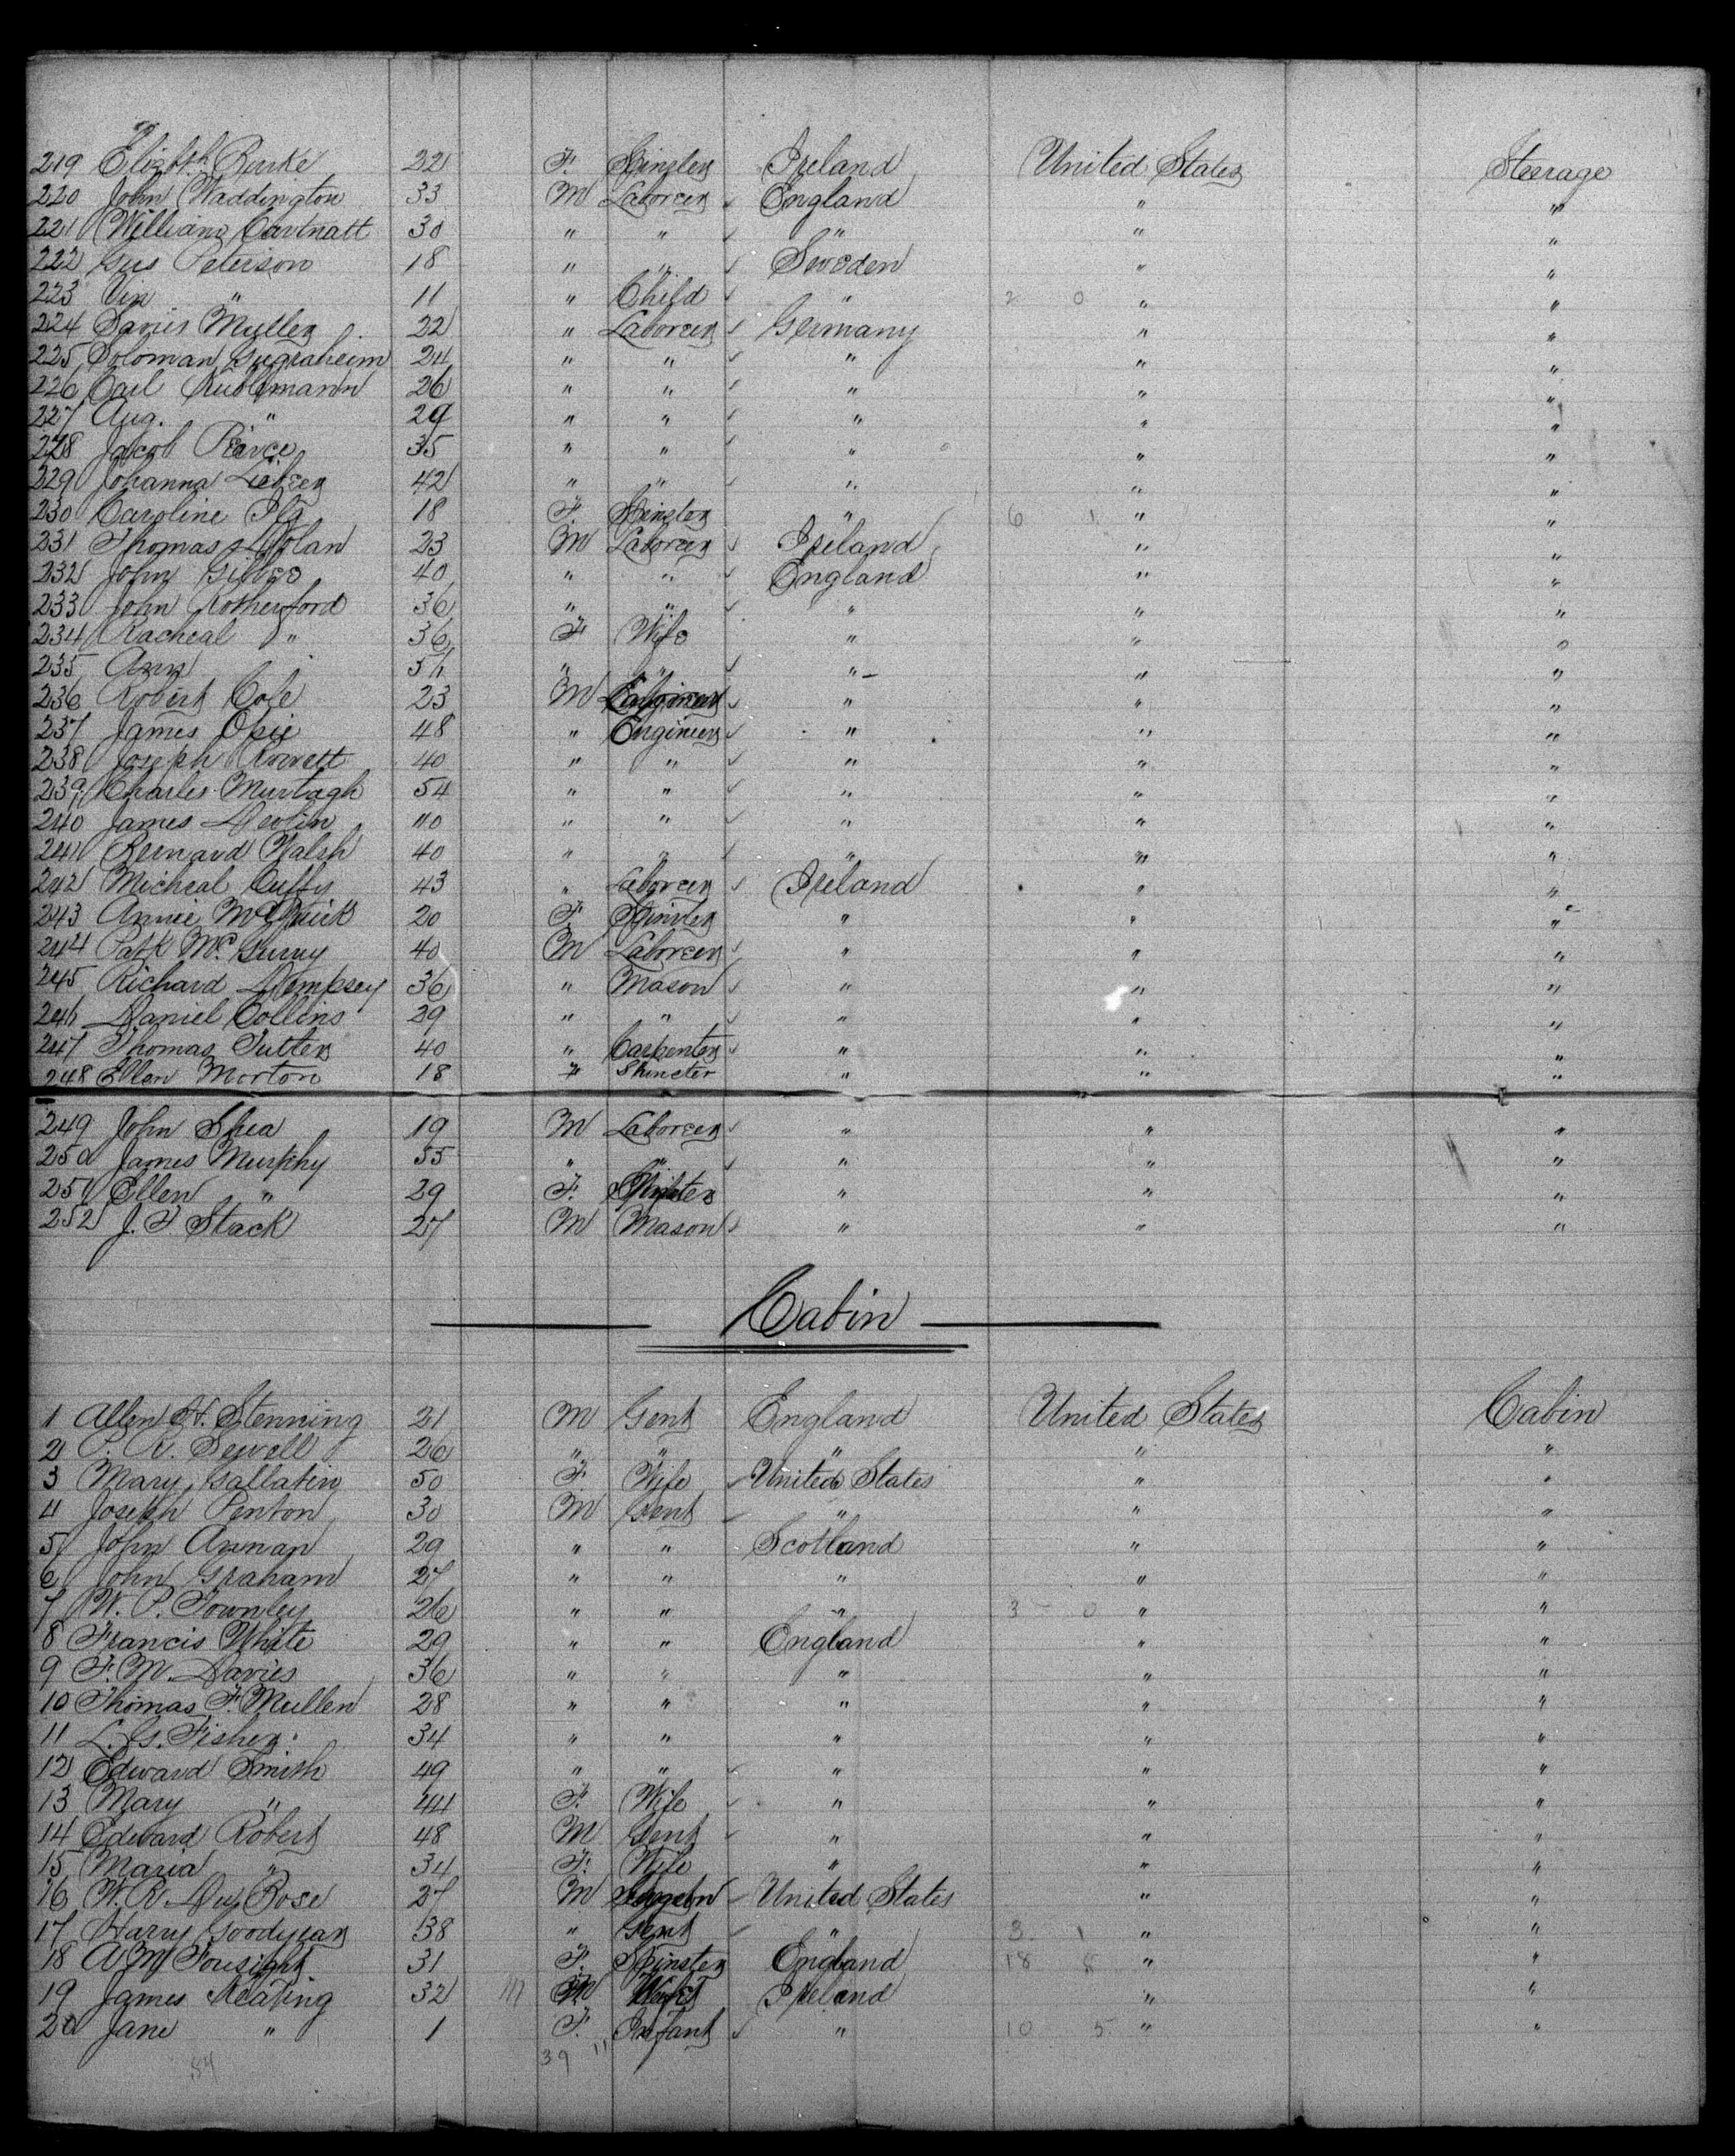 219 Elizbth. Burke 22 F. Spinster Ireland United States Steerage
220 John Waddington 33 M Laborer ✓ England " "
221 William Cartnatt 30 " " ✓ " " "
222 Gus Peterson 18 " " ✓ Sweden " "
223 " 11 " Child ✓ " 2 0 " "
224 Muller 22 " Laborer ✓ Germany " "
225 Soloman Gugraheim 24 " " ✓ " " "
226 Carl Kubbmann 26 " " ✓ " " "
227 Aug. " 29 " " ✓ " " "
228 Jacob Pearce 35 " " ✓ " " "
229 Johanna 42 " " ✓ " " "
230 Caroline 18 F. Spinster " 6 1 " "
231 Thomas Dolan 23 M Laborer ✓ Ireland " "
232 John 40 " " ✓ England " "
233 John Rotherford 36 " " ✓ " " "
234 Racheal " 36 F Wife " " "
235 Ann " " ✓ " " "
236 Robert Cole 23 M ✓ " " "
237 James Opie 48 " Engineer ✓ " " "
238 Joseph Rowett 40 " " ✓ " " "
239 Charles Murtagh 54 " " ✓ " " "
240 James Devlin 40 " " ✓ " " "
241 Bernard Walsh 40 " " ✓ " " "
242 Micheal Cuffy 43 " Laborer ✓ Ireland " "
243 Annie 20 F. Spinster " " "
244 Patk Mc. Gurry 40 M Laborer ✓ " " "
245 Richard Dempsey 36 " Mason ✓ " " "
246 Daniel Collins 29 " " ✓ " " "
247 Thomas Sutter 40 " Carpenter ✓ " " "
248 Ellen Morton 18 F Spincter " " "
249 John Shea 19 M Laborer ✓ " " "
250 James Murphy 35 " " ✓ " " "
251 Ellen " 29 F. " " "
252 J. F. Stack 27 M Mason ✓ " " "
Cabin
1 Allen H. Stenning 21 M Gent England United States Cabin
2 R. Sewell 26 " " " " "
3 Mary Gallatin 50 F Wife ✓ United States " "
4 Joseph Penton 30 M Gent ✓ " " "
5 John Annan 29 " " Scotland " "
6 John Graham 27 " " " " "
7 W. P. Townley 26 " " " 3 0 " "
8 Francis White 29 " " England " "
9 F. M. Davies 36 " " " " "
10 Thomas F. Mullen 28 " " " " "
11 L. G. Fisher 34 " " " " "
12 Edward Smith 49 " " ✓ " " "
13 Mary " 44 F. Wife ✓ " " "
14 Edward Robert 48 M Gent ✓ " " "
15 Maria " 34 F. Wife " " "
16 W. R. Du Bose 27 M Surgeon United States " "
17 Harry Goodyear 38 " Gent ✓ " 3 1 " "
18 A M Foresight 31 F. Spinster England 18 8 " "
19 James Keating 32 M M Ireland " "
20 Jane " 1 F. Infant ✓ " 10 5 " "
39 11
84